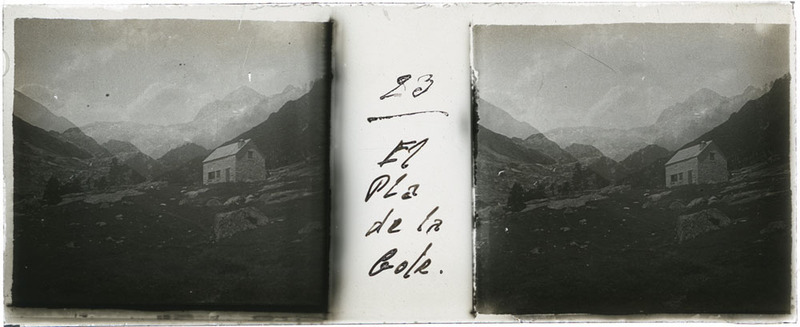 23
El
Pla
de la
Cole.